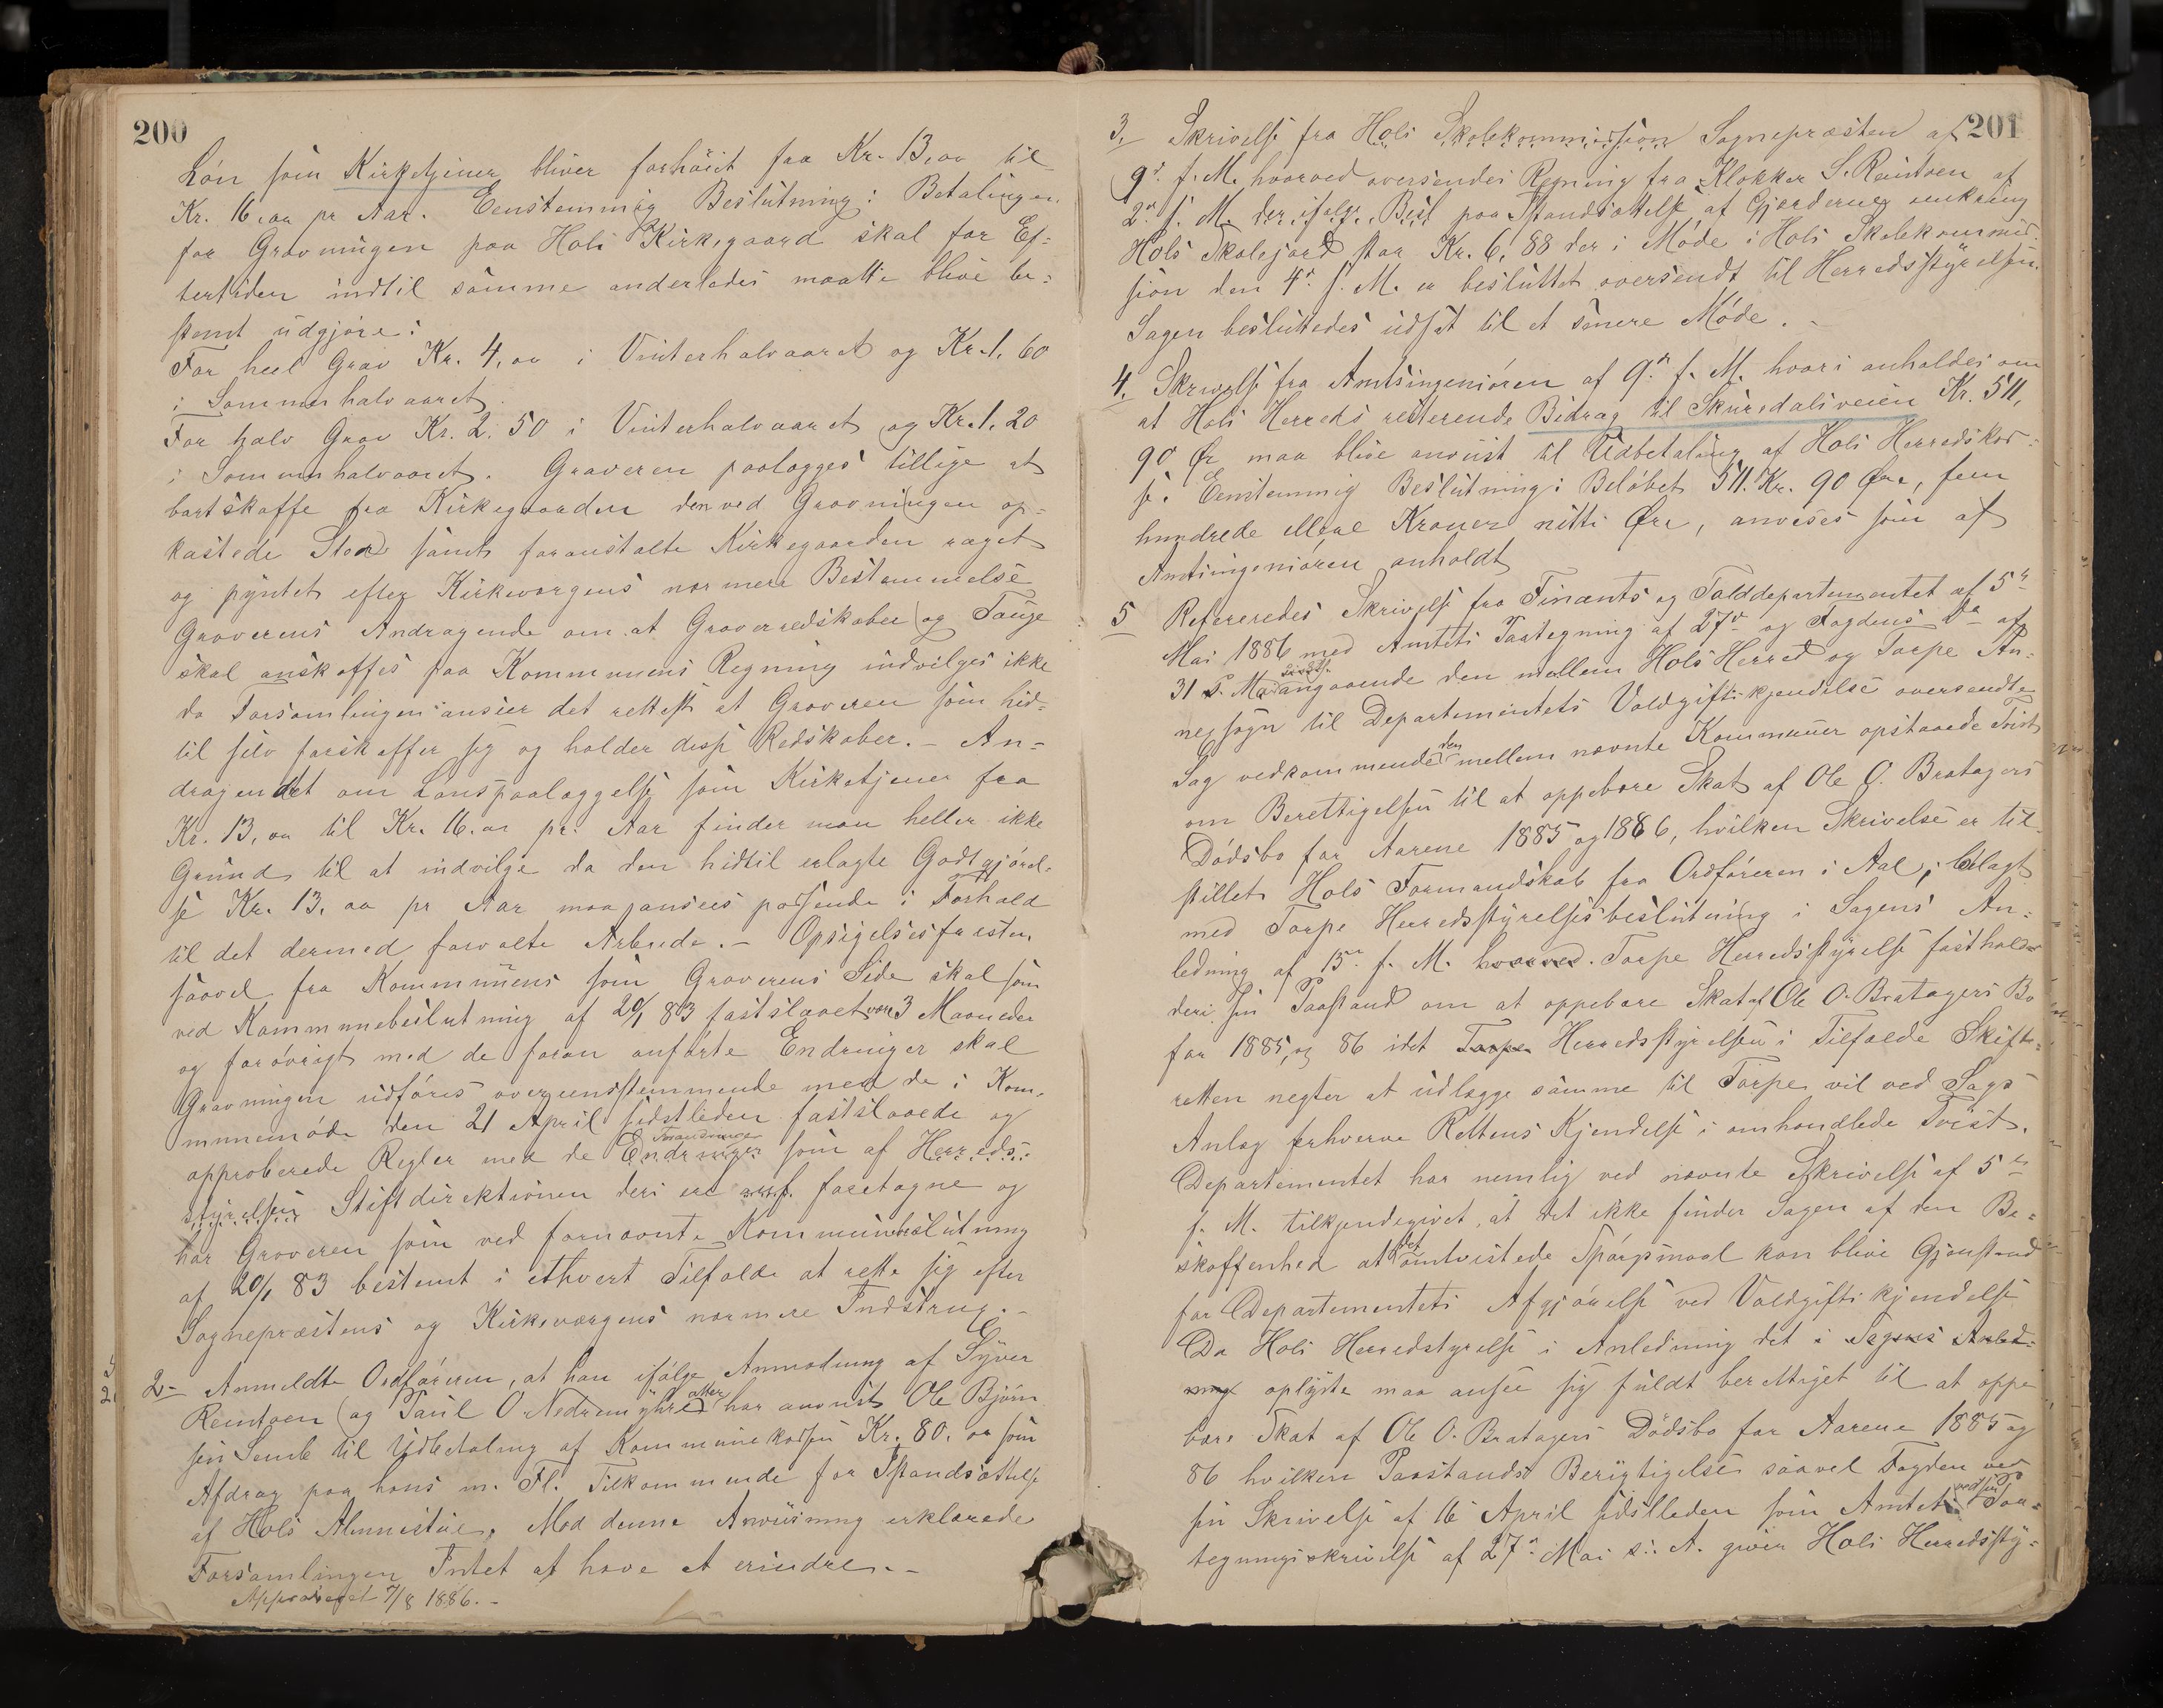 200
Lön som Kirketjener bliver forhöiet fra Kr. 13,00 til
Kr. 16,00 pr Aar. Eenstemmig Beslutning: Betalingen
for Gravningen paa Hols Kirkegaard skal for Ef-
tertiden indtil samme anderledes maatte blive be-
stemt udgjöre:
For heel Grav Kr. 4,00 i Vinterhalvaaret og Kr. 1,60
i Sommerhalvaaret.
For halv Grav Kr. 2,50 i Vinterhalvaaret og Kr. 1,20
i Sommerhalvaaret. Graveren paalægges tillige at
bortskaffe fra Kirkegaarden den ved Gravningen op-
kastede samt foranstalte Kirkegaarden raget
og pyntet efter Kirkeværgens nærmere Bestemmelse
Graverens Andragende om at Graverredskaber og Tauge
skal anskaffes paa Kommunens Regning indvilges ikke
da Forsamlingen ansier det rettest at Graveren som hid-
til selv forskaffer sig og holder disse Redskaber. – An-
dragendet om Lönspaalæggelse som Kirketjener fra
Kr. 13,00 til Kr. 16.00 pr. Aar finder man heller ikke
Grund til at indvilge da den hidtil erlagte Godtgjörel-
se Kr. 13,00 pr Aar maa ansees passende i Forhold
til det dermed forvoldte Arbeide. – Opsigelsesfristen
saavel fra Kommunens som Graverens Side skal som
ved Kommunebeslutning af 20/1 83 fastslaaet være 3 Maaneder
og forövrigt med de foran anförte Endringer skal
Gravningen udföres overeensstemmende med de i Kom-
munemöde den 21 April sidstleden fastslaaede og
approberede Regler med de Endringer som af Herreds-
Forandringer
styrelsen Stiftdirektionen deri ere foretagne og
har Graveren som ved fornævnte Kommunebeslutning
af 20/1 83 bestemt i ethvert Tilfælde at rette sig efter
Sognepræstens og Kirkeværgens nærmere Indstrux. –
2 – Anmeldte Ordföreren, at han ifölge Anmodning af Syver
Reintoen og Paul O. Nedremyhre atter har anvist Ole Björn-
sen Semb til Udbetaling af Kommunekassen Kr. 80.00 som
Afdrag paa hans m. Fl. Tilkommende for Istandsættelse
af Hols Alminstue. Mod denne Anviisning erklærede
Forsamlingen Intet at have at erindre. –
Approberet 7/8 1886. –
201
3. Skrivelse fra Hols Skolekommission Sognepræsten af
9de f. M. hvorved oversendes Regning fra Klokker S. Reintoen af
2den f. M. der ifölge Besl paa Istandsættelse af Gjerderne omkring
Hols Skolejord stor Kr. 6,88 der i Möde i Hols Skolekommis-
sion den 4de f. M. er besluttet oversendt til Herredsstyrelsen.
Sagen besluttedes udsat til et senere Möde. –
4. Skrivelse fra Amtsingeniören af 9de f. M. hvori anholdes om
at Hols Herreds resterende Bidrag til Skuredalsveien Kr. 511,
90 Ør maa blive anvist til Udbetaling af Hols Herredskas-
se. Eenstemmig Beslutning: Belöbet 511. Kr. 90 Øre, fem
hundrede elleve Kroner nitti Øre, anvises som af
Amtsingeniören anholdt
5 Refereredes Skrivelse fra Finants og Tolddepartementet af 5te
Mai 1886 med Amtets Paategning af 27de og Fogdens Do af
31 s. M. angaaende den mellem Hols Herred og Torpe An-
nexsogn til Departementets Voldgiftskjendelse oversendte
Sag vedkommende den mellem nævnte Kommuner opstaaede Tvist
om Berettigelsen til at oppebære Skat af Ole O. Bratagers
Dödsbo for Aarene 1885 og 1886, hvilken Skrivelse er til-
stillet Hols Formandskab fra Ordföreren i Aal, bilagt
med Torpe Herredsstyrelsesbeslutning i Sagens An-
ledning af 15de f. M. hvorved Torpe Herredsstyrelse fastholder
deri sin Paastand om at oppebære Skat af Ole O. Bratagers Bo
for 1885 og 86 idet Torpe Herredsstyrelsen i Tilfælde Skifte-
retten negter at udlægge samme til Torpe vil ved Sags
Anlæg erhverve Rettens Kjendelse i omhandlede Tvist.
Departementet har nemlig ved nævnte Skrivelse af 5te
f. M. tilkjendegivet, at det ikke finder Sagen af den Be-
skaffenhed at det omtvistede Spörgsmaal kan blive Gjenstand
for Departementets Afgjörelse ved Voldgiftskjendelse
Da Hols Herredsstyrelse i Anledning det i Sagens Anled-
ning oplyste maa ansee sig fuldt berettiget til at oppe
bære Skat af Ole O. Bratagers Dödsbo for Aarene 1885 og
86 hvilken Paastands Berigtigelse saavel Fogden ved
sin Skrivelse af 16 April sidstleden som Amtet ved sin Paa-
tegningsskrivelse af 27de Mai s. A. giver Hols Herredssty-